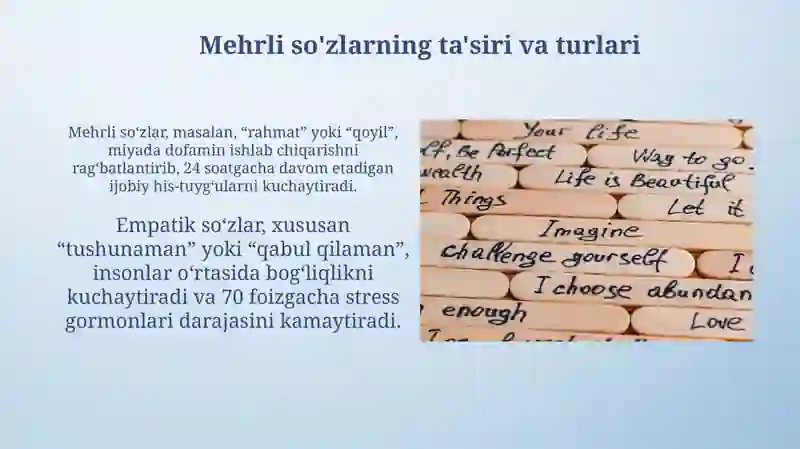 Mehrli so'zlarning ta'siri va turlari
Mehrli so‘zlar, masalan, “rahmat” yoki “qoyil”,
miyada dofamin ishlab chiqarishni
rag‘batlantirib, 24 soatgacha davom etadigan
ijobiy his-tuyg‘ularni kuchaytiradi.
Empatik so‘zlar, xususan
“tushunaman” yoki “qabul qilaman”,
insonlar o‘rtasida bog‘liqlikni
kuchaytiradi va 70 foizgacha stress
gormonlari darajasini kamaytiradi.
Your life
Be Perfect
Way to go.
wealth
Life is Beautiful
Things
Let it
Imagine
challenge yourself
I
I choose abundan
enough
Love